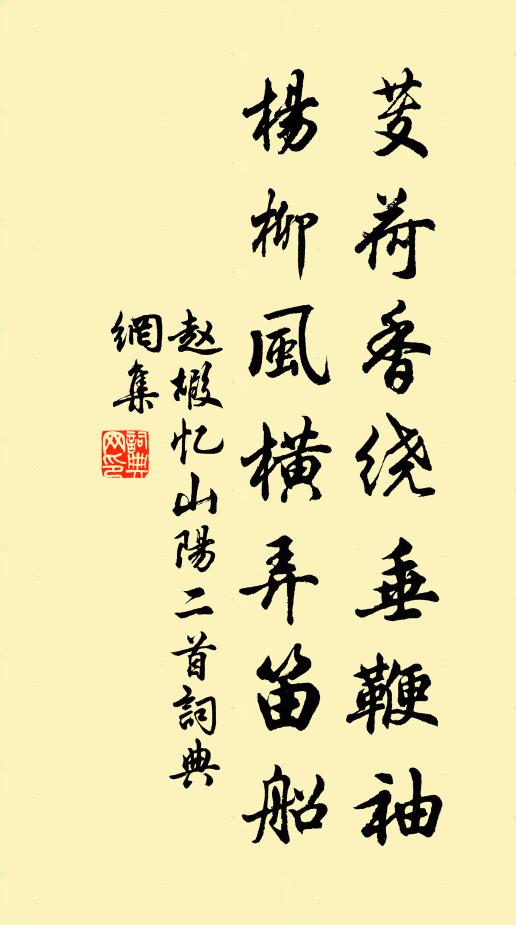 芰荷香绕垂鞭袖
楊柳風橫弄笛船
赵嘏忆山陽二首詞典
網集
詞典
网印